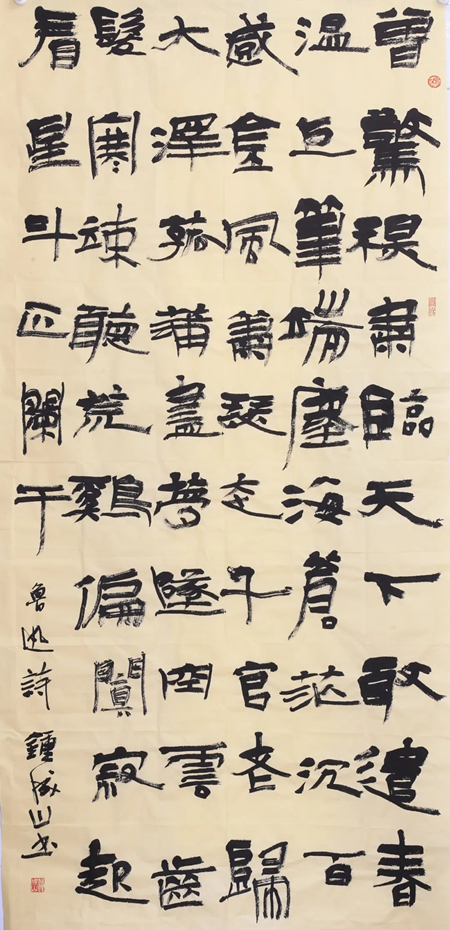 曾驚秋肅臨天下敢遣春
温上筆端塵海蒼茫沉百
感金風蕭瑟走千官老歸
大澤孤蒲盡夢墜空雲齒
髮寒竦聽荒鷄偏闃寂起
看星斗正闌干
魯迅詩 鍾成山書